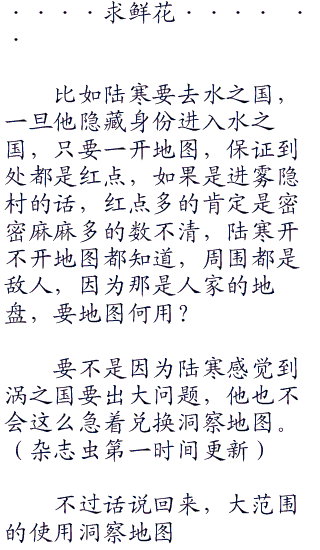 · · · · 求鲜花 · · · · · ·
·
比如陆寒要去水之国，
一旦他隐藏身份进入水之
国，只要一开地图，保证到
处都是红点，如果是进雾隐
村的话，红点多的肯定是密
密麻麻多的数不清，陆寒开
不开地图都知道，周围都是
敌人，因为那是人家的地
盘，要地图何用？
要不是因为陆寒感觉到
涡之国要出大问题，他也不
会这么急着兑换洞察地图。
（杂志虫第一时间更新）
不过话说回来，大范围
的使用洞察地图